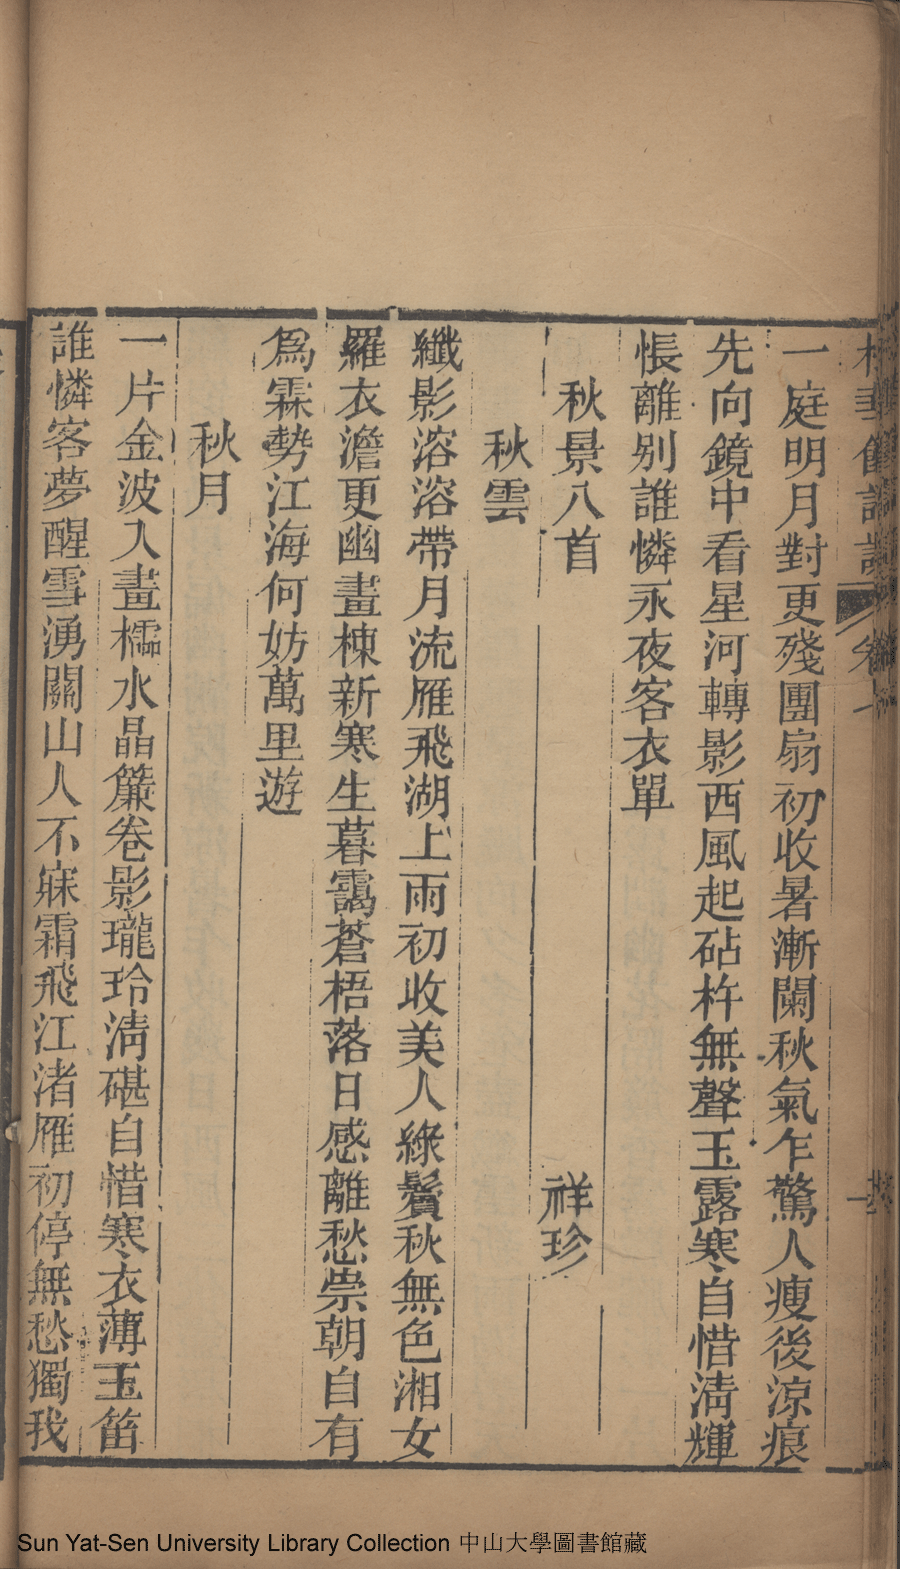 一庭明月對更殘團扇初收暑漸闌秋氣乍驚人瘦後涼痕
先向鏡中看星河轉影西風起砧杵無聲玉露寒自惜淸輝
悵離別誰憐永夜客衣單
秋景八首 祥珍
秋雲
纖影溶溶帶月流雁飛湖上雨初收美人綠鬢秋無色湘女
羅衣澹更幽畫棟新寒生暮靄蒼梧落日感離愁崇朝自有
爲霖勢江海何妨萬里遊
秋月
一片金波入畫櫺水晶簾卷影瓏玲淸碪自惜寒衣薄玉笛
誰憐客夢醒雪湧關山人不寐霜飛江渚雁初停無愁獨我
Sun Yat-Sen University Library Collection 中山大學圖書館藏